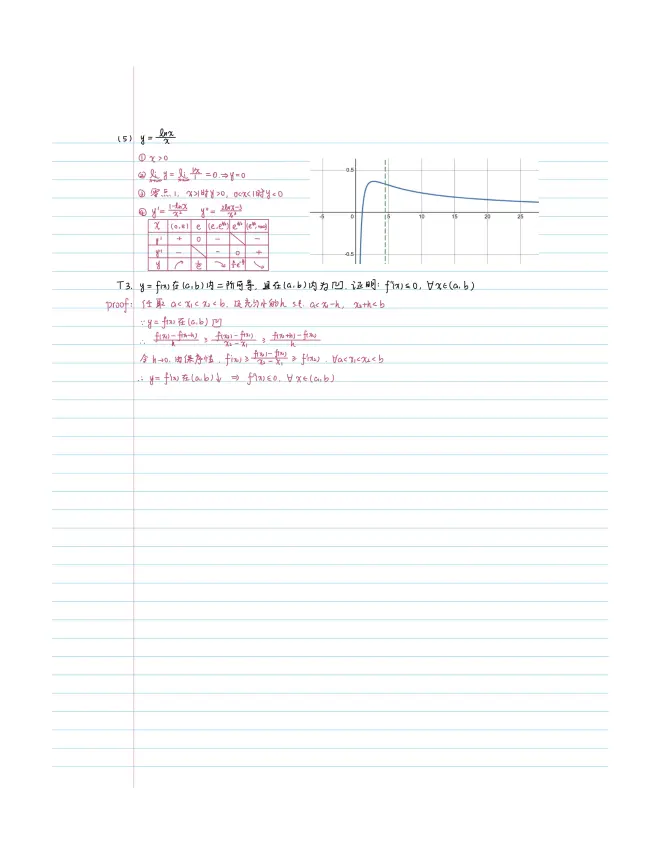 (5) y = lnx/x
① x>0
② lim y = lim 1/x / 1 = 0. ⇒ y=0
③ 零点 1, x>1时y>0, 0<x<1时y<0
④ y' = 1-lnx/x² y'' = 2lnx-3/x³
x (0,e) e (e,e^3/2) e^3/2 (e^3/2,+∞)
y' + 0 - \ -
y'' - \ - 0 +
y 1/e
0.5
-5 0 5 10 15 20 25
-0.5
T3. y=f(x)在(a,b)内二阶可导, 且在(a,b)内为凹. 证明: f''(x)≤0, ∀x∈(a,b)
proof: 任取 a<x₁<x₂<b, 取充分小的h s.t. a<x₁-h, x₂+h<b
∵ y=f(x)在(a,b)凹
∴ f(x₁)-f(x₁-h)/h ≥ f(x₂)-f(x₁)/x₂-x₁ ≥ f(x₂+h)-f(x₂)/h
令h→0, 由保序性, f'(x₁) ≥ f(x₂)-f(x₁)/x₂-x₁ ≥ f'(x₂), ∀a<x₁<x₂<b
∴ y=f'(x)在(a,b)↓ ⇒ f''(x)≤0, ∀x∈(a,b)